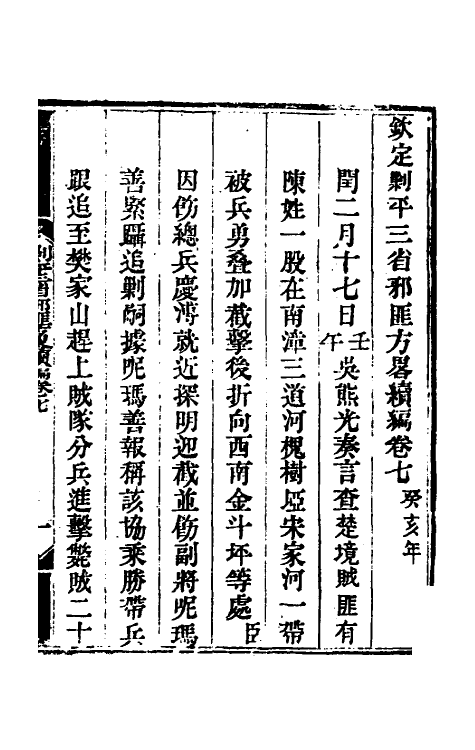 欽定剿平三省邪匪方畧續編卷七 癸亥年
閏二月十七日壬午吳熊光奏言查楚境賊匪有
陳姓一股在南漳三道河槐樹埡宋家河一帶
被兵勇叠加截擊後折向西南金斗坪等處臣
因飭總兵慶溥就近探明迎截並飭副將呢瑪
善緊躡追剿嗣據呢瑪善報稱該協乘勝帶兵
跟追至樊家山趕上賊隊分兵進擊斃賊二十